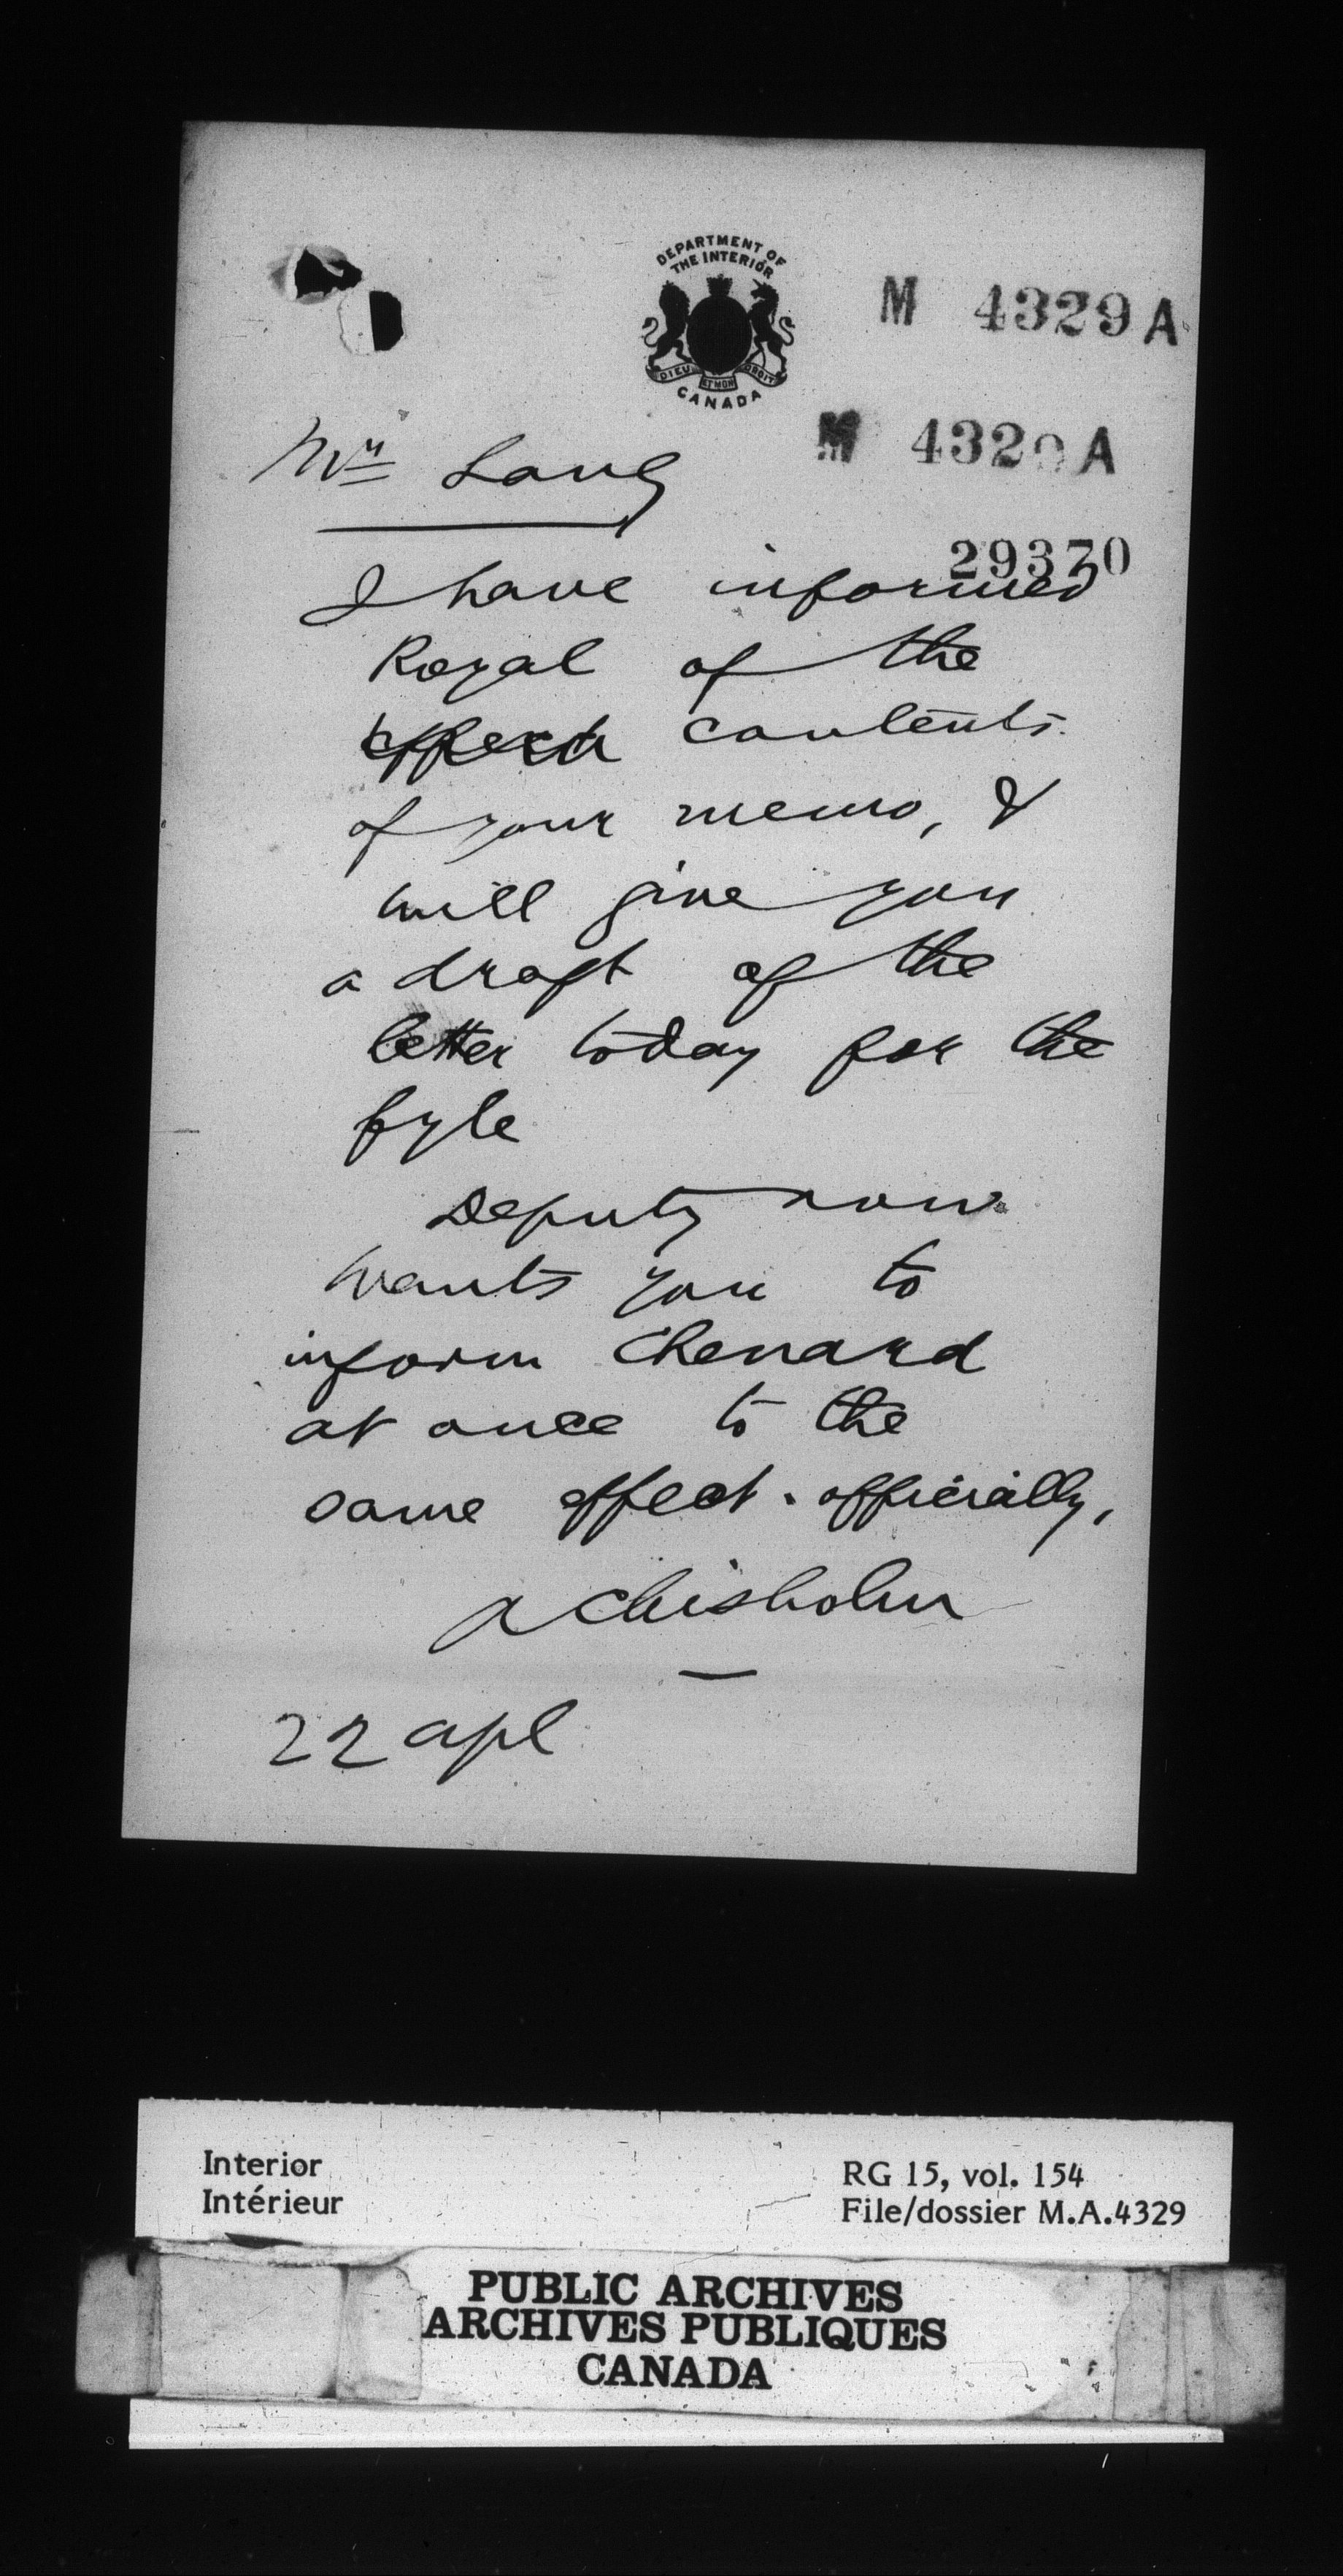 DEPARTMENT OF
THE INTERIOR
DIEU ET MON DROIT
CANADA
M 4329 A
M 4329 A
Mr Lang
29370
I have informed
Royal of the
effect contents
of your memo, &
will give you
a draft of the
letter today for the
fyle
Deputy now
wants you to
inform Chenard
at once to the
same effect . officially,
A Chisholm
22 apl
Interior
Intérieur
RG 15, vol. 154
File/dossier M.A.4329
PUBLIC ARCHIVES
ARCHIVES PUBLIQUES
CANADA